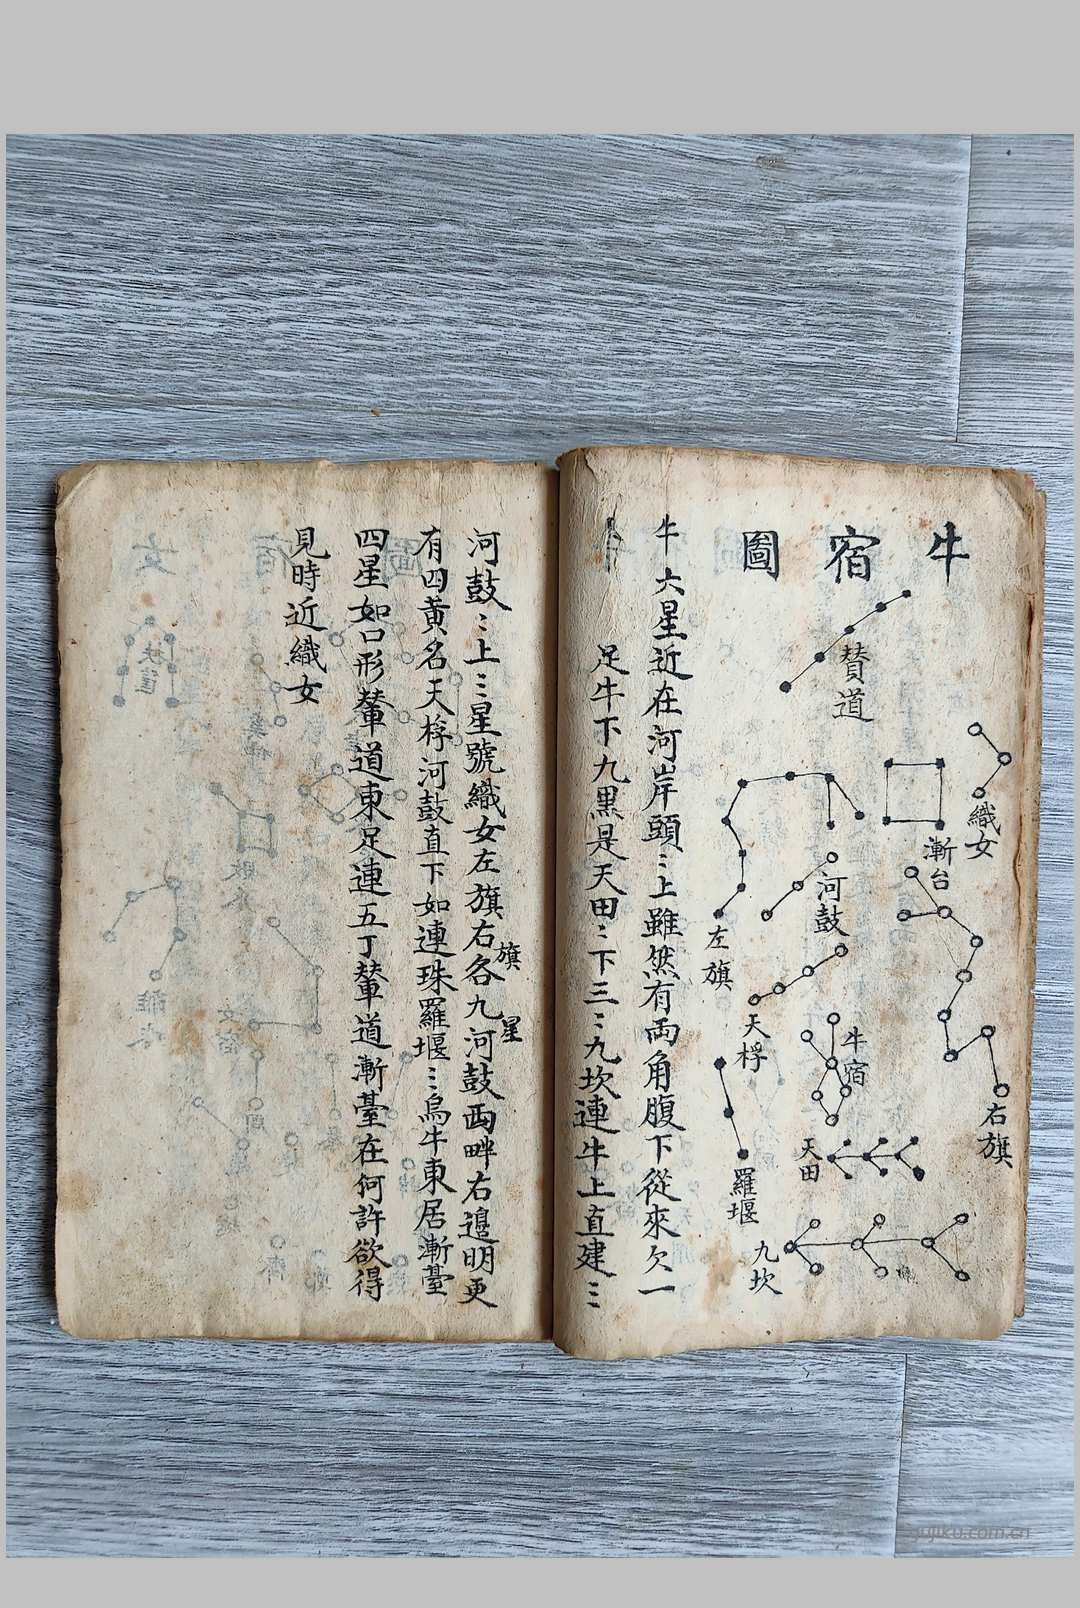 牛宿圖
賛道
織女
漸台
河鼓
左旗
天桴
牛宿
右旗
天田
羅堰
九坎
牛 六星近在河岸頭〻上雖然有両角腹下從來欠一
足牛下九黒是天田〻下三〻九坎連牛上直建三
河鼓〻上三星號織女左旗右各九河鼓両畔右邉明更
旗
星
有四黄名天桴河鼓直下如連珠羅堰三烏牛東居漸臺
四星如口形輦道東足連五丁輦道漸臺在何許欲得
見時近織女
gujiku.com.cn